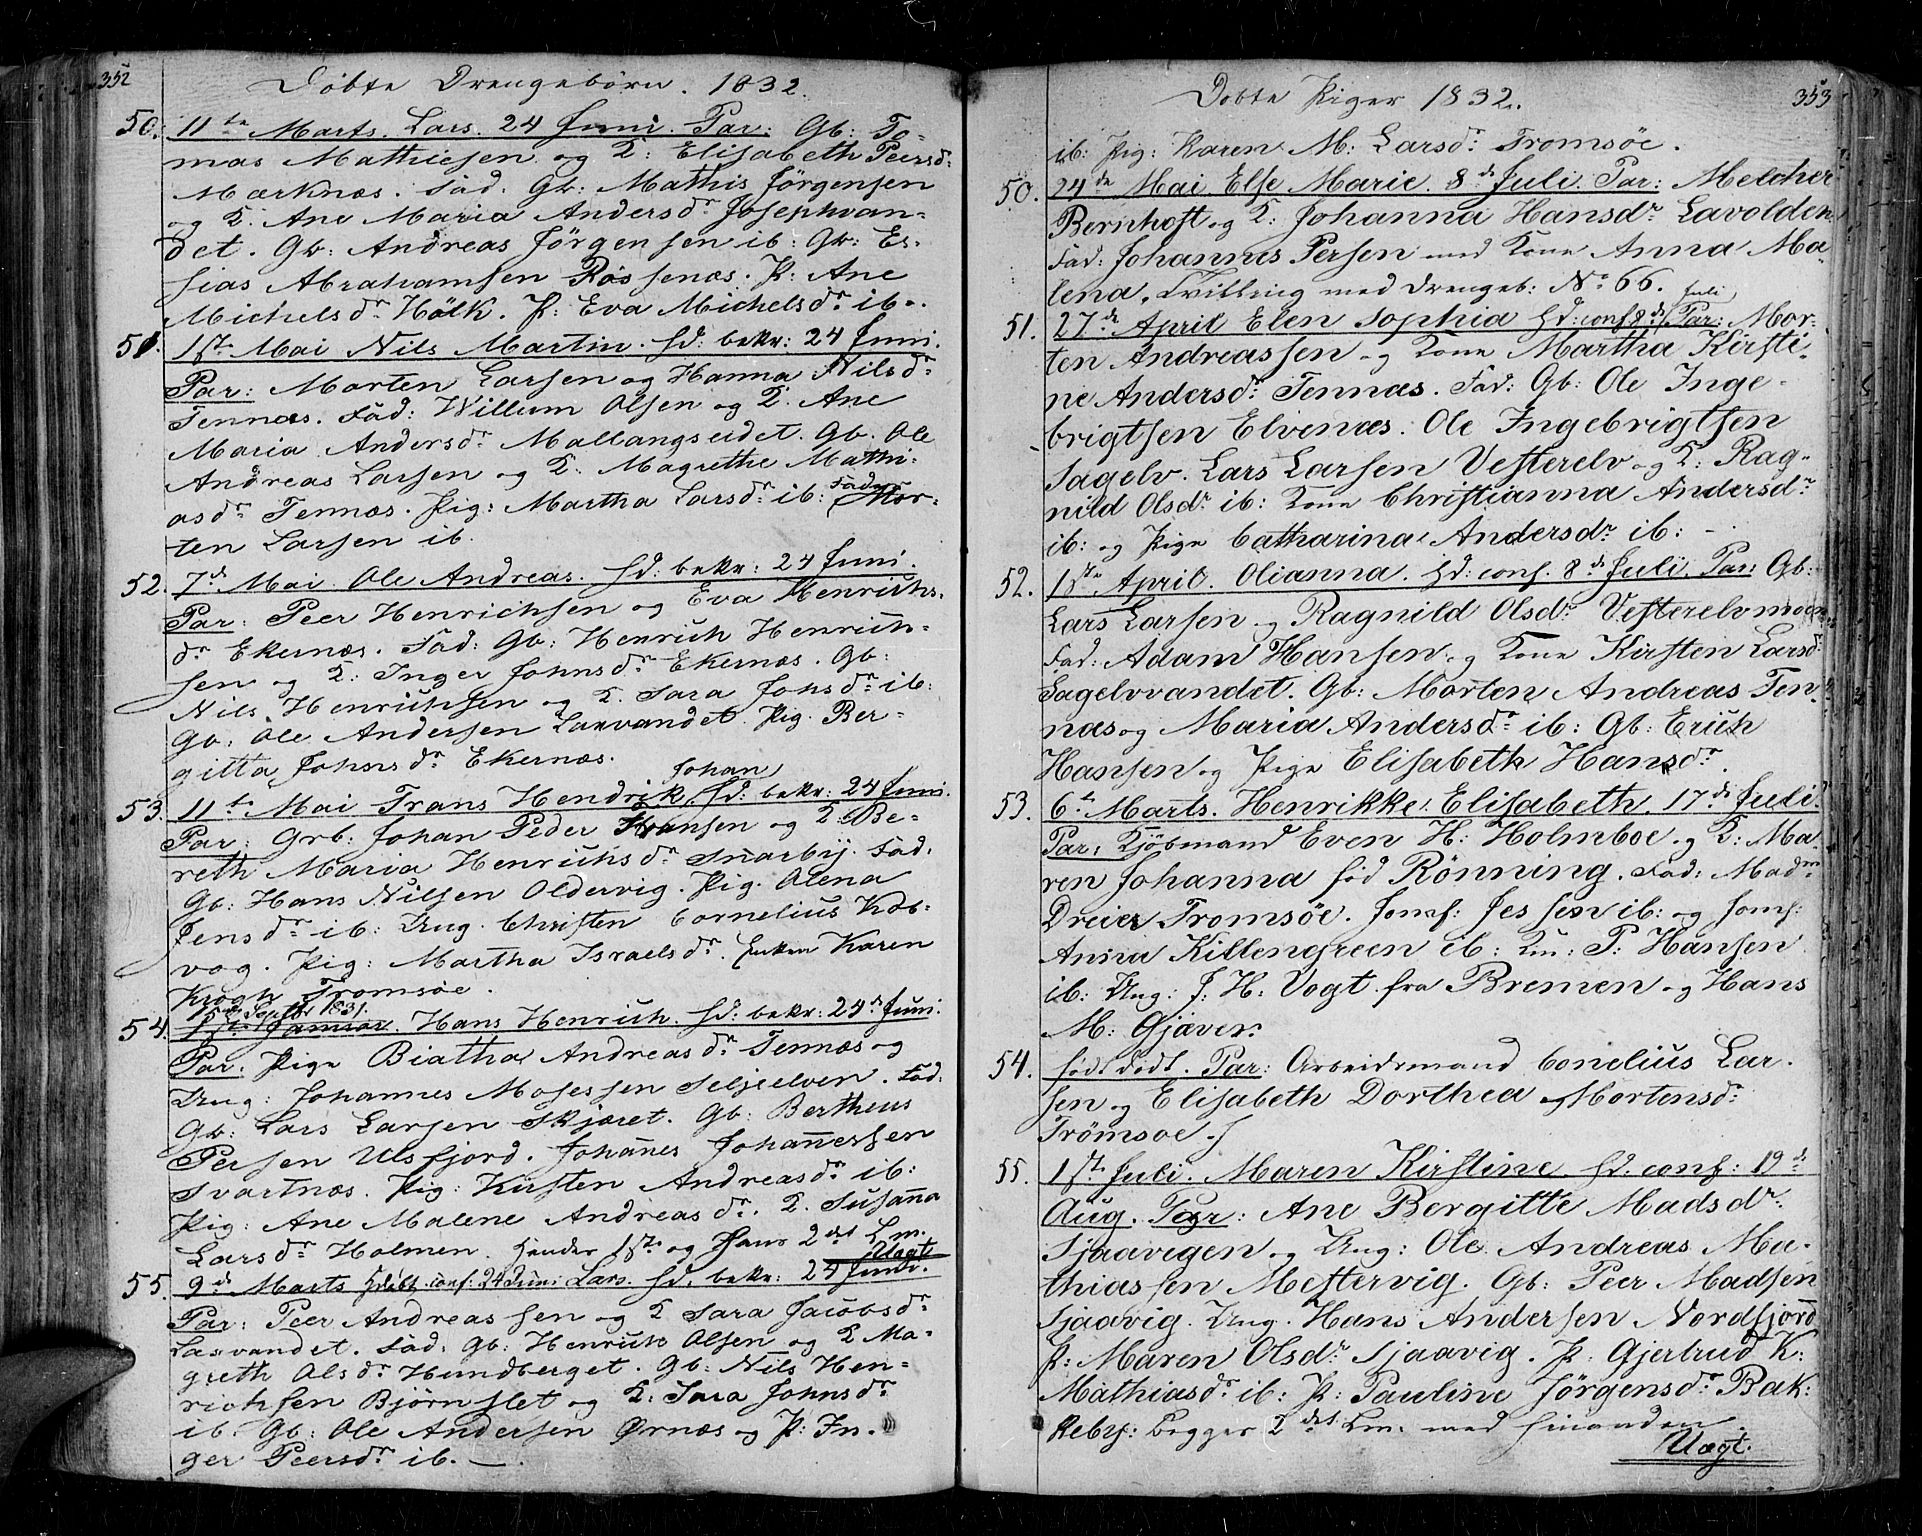 352
Döbte Drengebörn. 1832.
50. 11te Marts. Lars. 24 Juni. Par: Gb: To-
mas Mathiesen og K: Elisabeth Peersd:
Mærknæs. Fad: Gb: Mathis Jörgensen
og K. Ane Maria Andersdr Josephvan-
det. Gb: Andreas Jörgensen ib: Gb: Es-
sias Abrahamsen Rössenæs. P: Ane
Michelsdr Hölk. P: Eva Michelsdr ib.
51. 1ste Mai Nils Martin. hd: bekr: 24 Juni.
Par: Morten Larsen og Hanna Nilsdr
Tennæs. Fad: Willum Olsen og K. Ane
Maria Andersdr Mallangseidet. Gb. Ole
Andreas Larsen og K. Magrethe Mathi-
asdr Tennæs. Pig: Martha Larsdr ib: Fader Mor-
ten Larsen ib.
52. 7de Mai. Ole Andreas. hd: bekr: 24 Juni.
Par: Peer Henrichsen og Eva Henrichs-
dr Ekernæs. Fad: Gb: Henrich Henrich-
sen og K: Inger Johnsdr Ekernæs. Gb:
Nils Henrichsen og K. Sara Johsdr ib:
Gb: Ole Andersen Laxvandet. Pig. Ber-
gitta Johnsdr Ekernæs.
Johan
53. 11te Mai Frans Hendrik. hd: bekr: 24 Juni.
Par: Grb: Johan Peder Hansen og K: Be-
reth Maria Henrichsdr Snarbÿ. Fad:
Gb: Hans Nilsen Oldervig. Pig. Olena
Jensdr ib: Ung. Christen Cornelius Kob-
vog. Pig: Martha Israelsdr. Enken Karen
Krogh Tromsöe.
Septbr 1831.
54. 1ste Januar. Hans Henrich. hd: bekr: 24de Juni.
Par. Pige Biatha Andreasdr Tennæs og
Ung: Johannes Mosessen Seljeelven. Fad:
Gb: Lars Larsen Skjæret. Gb: Bertheus
Persen Ulsfjord. Johañes Johañessen
Svartnæs. Pig: Kirsten Andreasdr ib:
Pig: Ane Malene Andreasdr. K. Susaña
Larsdr Holmen. Hendes 1ste og Hans 2det Lm.
Vogt
55. 9de Marts hdöbt. conf: 24 Juni Lars. hd: bekr: 24 Juni.
Par: Peer Andreassen og K Sara Jacobsdr
Laxvandet. Fad: Gb: Henrich Olsen og K Ma-
greth Olsdr Hundberget. Gb: Nils Hen-
richsen Björnslet og K: Sara Johnsdr
ib: Gb: Ole Andersen Ørnæs og P: In-
ger Peersdr ib.
353
Döbte Piger 1832.
ib: Pig: Karen M: Larsdr Tromsöe.
50. 24de Mai Else Marie. 8de Juli. Par: Melcher
Bernhoft og K: Johanna Hansdr Lavolden
Fad: Johannes Persen med Kone Anna Ma-
lena. Tvilling med Drengeb: No 66.
Juli
51. 27de April Elen Sophia hd: conf 8de Par: Mor-
ten Andreassen og Kone Martha Kirsti-
ne Andersdr Tennæs. Fad: Gb: Ole Inge-
brigtsen Elvenæs. Ole Ingebrigtsen
Sagelv. Lars Larsen Vesterelv og K: Rag-
nild Olsdr ib: Kone Christianna Andersdr
ib: og Pige Catharina Andersdr ib:
52. 1ste April. Olianna. hd: conf. 8de Juli. Par: Gb:
Lars Larsen og Ragnild Olsdr Vesterelvmoen
Fad: Adam Hansen og Kone Kirsten Larsdr
Sagelvvandet. Gb: Morten Andreas Ten-
næs og Maria Andersdr ib: Gb: Erich
Hansen og Pige Elisabeth Hansdr.
53. 6te Marts. Henrikke Elisabeth. 17de Juli.
Par: Kjöbmand Even H: Holmboe og K: Ma-
ren Johanna föd Rönning. Fad: Madm
Dreier Tromsöe. Jomf: Jessen ib: og Jomf:
Anna Killengreen ib: Km: P: Hansen
ib: Ung: J: H: Vogt fra Bremen og Hans
M: Gjæver.
54. Födt dödt. Par: Arbeidsmand Conelius Lar-
sen og Elisabeth Dorthea Mortensdr
Trömsoe.
55. 1ste Juli. Maren Kirstine hd: conf: 19de
Aug. Par: Ane Bergitte Madsdr
Sjaavigen og Ung: Ole Andreas Ma-
thiassen Mestervig. Gb: Peer Madsen
Sjaavig. Ung. Hans Andersen Nordfjord
P: Maren Olsdr Sjaavig. P: Gjertrud K:
Mathiasdr ib: P: Pauline Jörgensdr Bak-
keby: Begges 2det Lm. med hinanden.
Vogt.